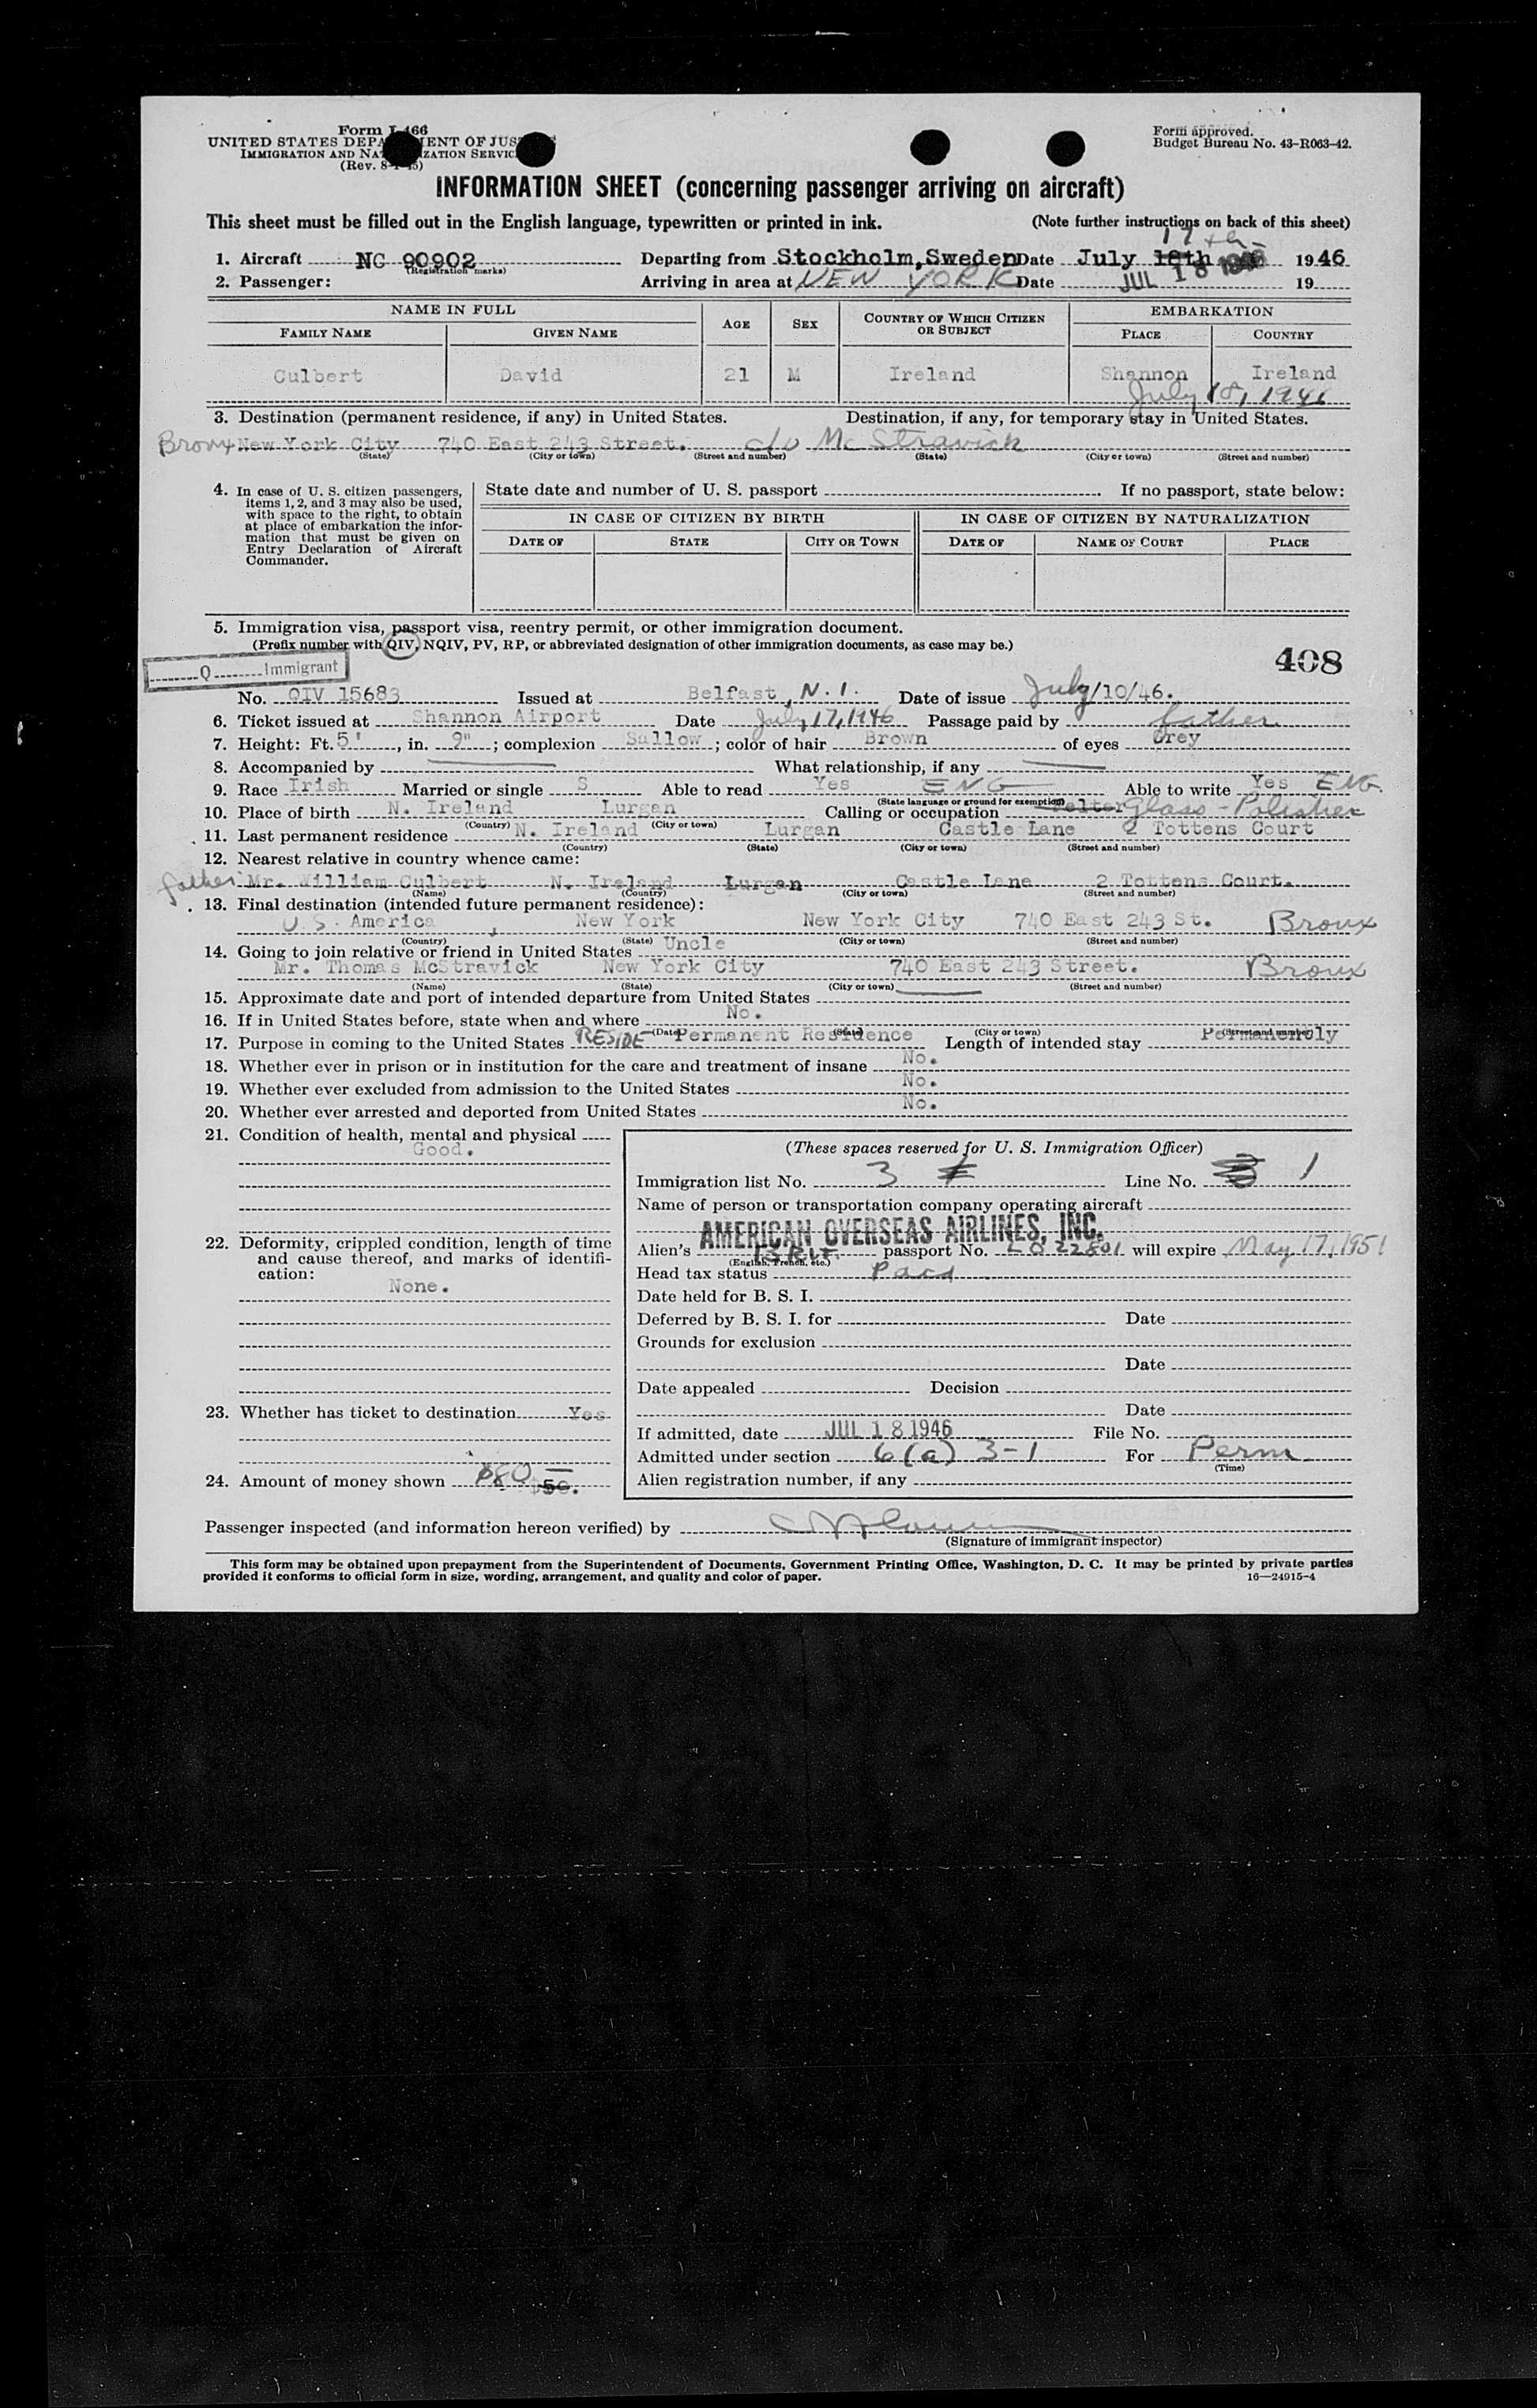 Form I-466
UNITED STATES DEPA ENT OF JUS
IMMIGRATION AND NA IZATION SERVIC
(Rev. 8-1-45)
Form approved.
Budget Bureau No. 43-R063-42.
INFORMATION SHEET (concerning passenger arriving on aircraft)
This sheet must be filled out in the English language, typewritten or printed in ink. (Note further instructions on back of this sheet)
17th
1. Aircraft NC 90902 Departing from Stockholm, Sweden Date July 18th 1946
(Registration marks)
2. Passenger: Arriving in area at NEW YORK Date JUL 18 1946 19
NAME IN FULL AGE SEX COUNTRY OF WHICH CITIZEN OR SUBJECT EMBARKATION
FAMILY NAME GIVEN NAME PLACE COUNTRY
Culbert David 21 M Ireland Shannon Ireland
July 18, 1946
3. Destination (permanent residence, if any) in United States. Destination, if any, for temporary stay in United States.
Bronx New York City 740 East 243 Street. c/o McStravick
(State) (City or town) (Street and number) (State) (City or town) (Street and number)
4. In case of U. S. citizen passengers, items 1, 2, and 3 may also be used, with space to the right, to obtain at place of embarkation the information that must be given on Entry Declaration of Aircraft Commander.
State date and number of U. S. passport If no passport, state below:
IN CASE OF CITIZEN BY BIRTH IN CASE OF CITIZEN BY NATURALIZATION
DATE OF STATE CITY OR TOWN DATE OF NAME OF COURT PLACE
5. Immigration visa, passport visa, reentry permit, or other immigration document.
(Prefix number with QIV, NQIV, PV, RP, or abbreviated designation of other immigration documents, as case may be.)
408
Q Immigrant
No. QIV 15683 Issued at Belfast, N. I. Date of issue July/10/46.
6. Ticket issued at Shannon Airport Date July, 17, 1946 Passage paid by father
7. Height: Ft. 5', in. 9"; complexion Sallow; color of hair Brown of eyes Grey
8. Accompanied by What relationship, if any
9. Race Irish Married or single S Able to read Yes ENG Able to write Yes ENG.
(State language or ground for exemption)
10. Place of birth N. Ireland Lurgan Calling or occupation Glass-Polisher
(Country) (City or town)
11. Last permanent residence N. Ireland Lurgan Castle Lane 2 Tottens Court
(Country) (State) (City or town) (Street and number)
12. Nearest relative in country whence came:
father Mr. William Culbert N. Ireland Lurgan Castle Lane 2 Tottens Court.
(Name) (Country) (City or town) (Street and number)
13. Final destination (intended future permanent residence):
U.S. America, New York New York City 740 East 243 St. Bronx
(Country) (State) (City or town) (Street and number)
14. Going to join relative or friend in United States Uncle
Mr. Thomas McStravick New York City 740 East 243 Street. Bronx
(Name) (State) (City or town) (Street and number)
15. Approximate date and port of intended departure from United States
16. If in United States before, state when and where No.
(Date) (State) (City or town) (Street and number)
17. Purpose in coming to the United States RESIDE Permanent Residence Length of intended stay Permanently
18. Whether ever in prison or in institution for the care and treatment of insane No.
19. Whether ever excluded from admission to the United States No.
20. Whether ever arrested and deported from United States No.
21. Condition of health, mental and physical
Good.
22. Deformity, crippled condition, length of time and cause thereof, and marks of identification:
None.
23. Whether has ticket to destination Yes
24. Amount of money shown $80 – $50.
(These spaces reserved for U. S. Immigration Officer)
Immigration list No. 3 Line No. 3 1
Name of person or transportation company operating aircraft
AMERICAN OVERSEAS AIRLINES, INC.
Alien's BRIT. passport No. L022801 will expire May 17, 1951
(English, French, etc.)
Head tax status Paid
Date held for B. S. I.
Deferred by B. S. I. for Date
Grounds for exclusion
Date
Date appealed Decision
Date
If admitted, date JUL 18 1946 File No.
Admitted under section 6(a) 3-1 For Perm
(Time)
Alien registration number, if any
Passenger inspected (and information hereon verified) by
(Signature of immigrant inspector)
This form may be obtained upon prepayment from the Superintendent of Documents, Government Printing Office, Washington, D. C. It may be printed by private parties
provided it conforms to official form in size, wording, arrangement, and quality and color of paper. 16—24915-4